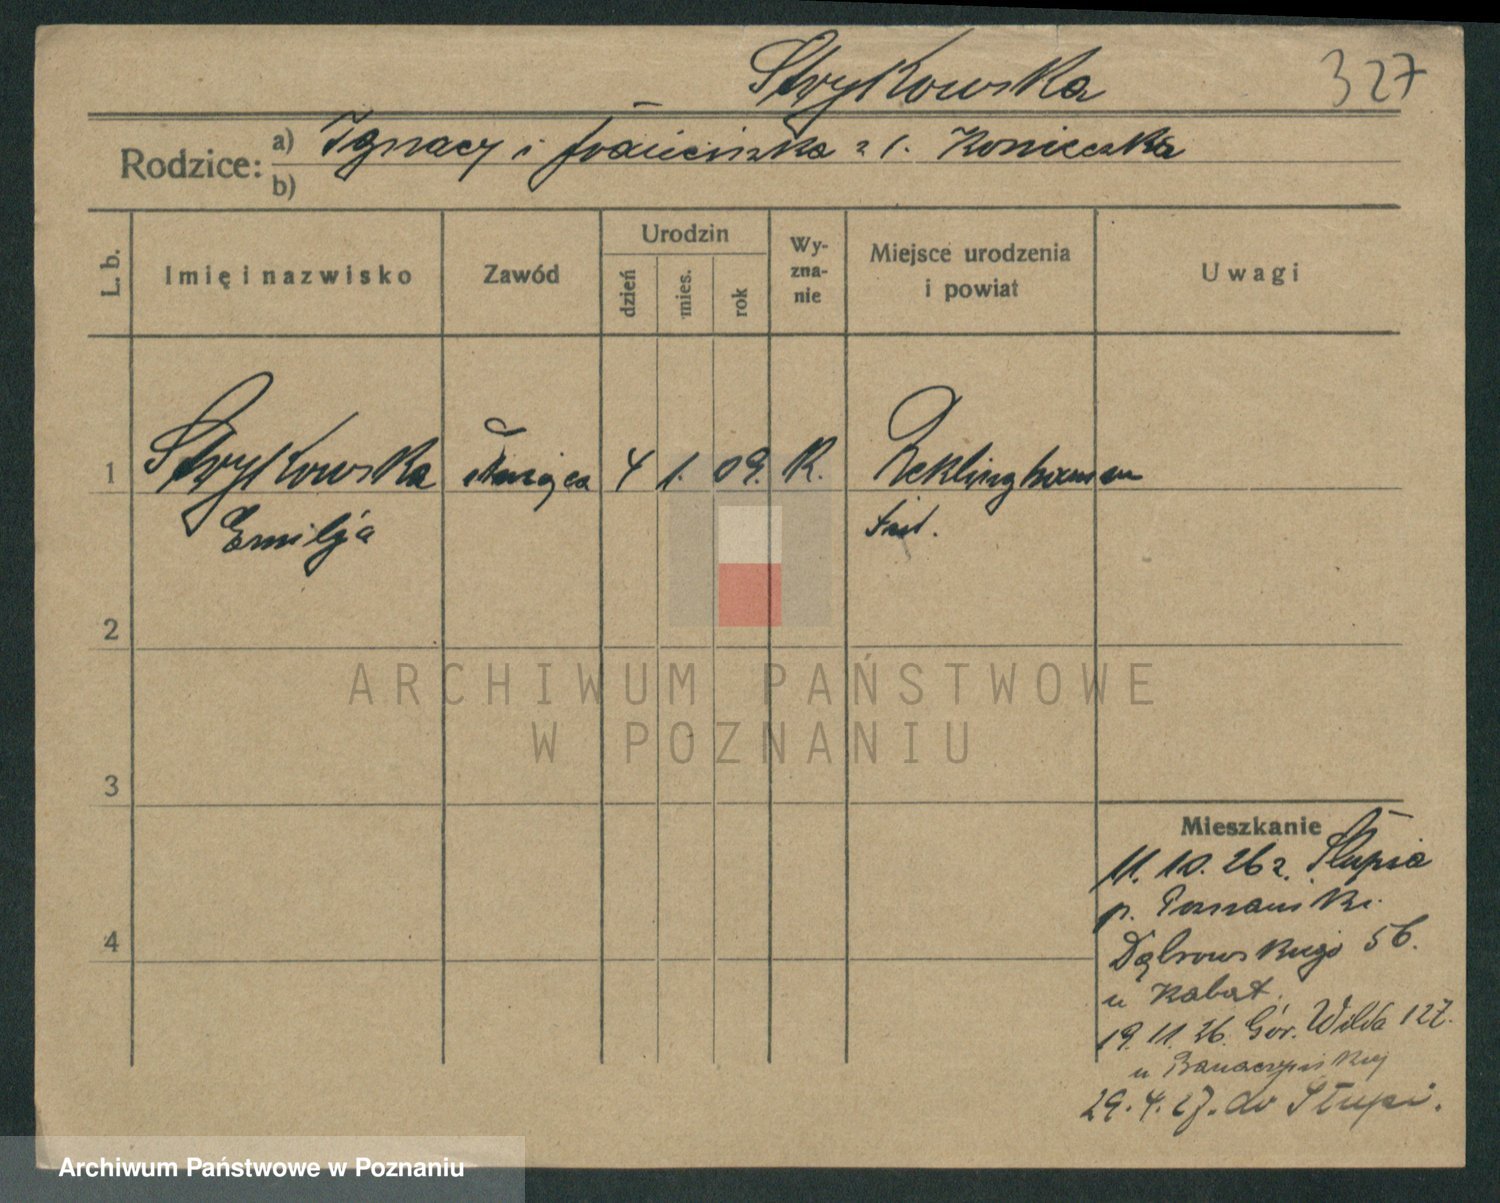 Strykowska
327
Rodzice: a) Ignacy i Franciszka z d. Konieczka
b)
L. b.
Imię i nazwisko
Zawód
Urodzin
dzień
mies.
rok
Wy-
zna-
nie
Miejsce urodzenia
i powiat
Uwagi
1
Strykowska służąca 4 1. 09. K. Reklinghausen
Emilja
2
3
4
Mieszkanie
11. 10. 26 z Słupia
p. Poznański
Dąbrowskiego 56.
u Kabat.
19. 11. 26. Gór. Wilda 127.
u
29. 4. 27. do Słupi.
ARCHIWUM PAŃSTWOWE
W POZNANIU
Archiwum Państwowe w Poznaniu